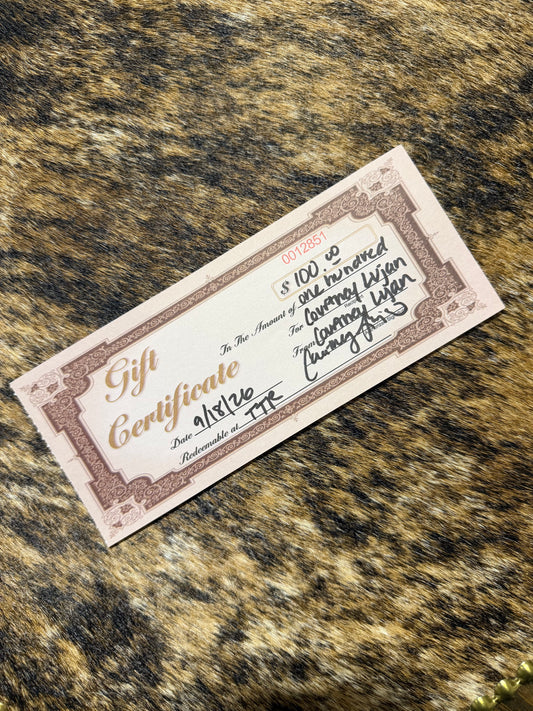 Gift
Certificate
0012851
$ 100.00
In The Amount of one hundred
For Courtney Lujan
From Courtney Lujan
Date 9/18/26
Redeemable at TTR